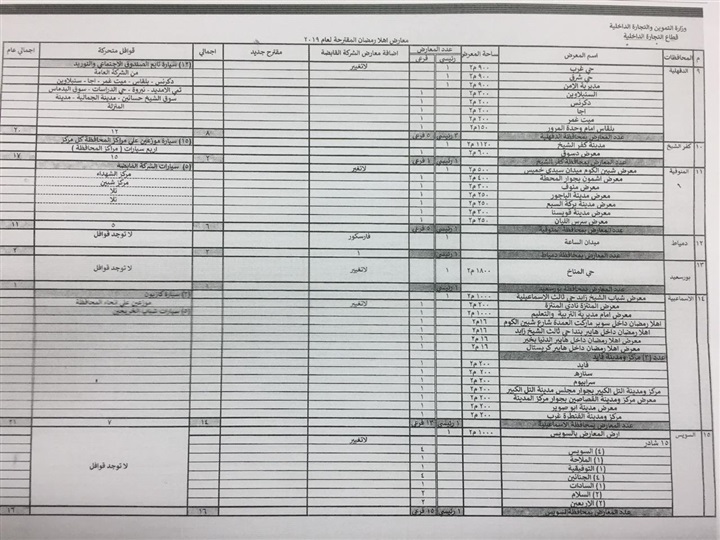 وزارة التموين والتجارة الداخلية
قطاع التجارة الداخلية
معارض اهلا رمضان المقترحة لعام ٢٠١٩
م المحافظات اسم المعرض مساحة المعرض عدد المعارض رئيسى فرعى اضافة معارض الشركة القابضة مقترح جديد اجمالي قوافل متحركة اجمالي عام
٩ الدقهلية حي غرب ٩٠٠م٢ ١ لاتغيير (١٢) سيارة تابع الصندوق الإجتماعي والتوريد
حي شرق ٩٠٠م٢ ١ من الشركة العامة
مديرية الامن ٩٠٠م٢ ١ دكرنس - بلقاس - ميت غمر - اجا - سنبلاوين
السنبلاوين ٣٠٠م٢ ١ تمي الامديد - نبروة - حي الدراسات - سوق البدماس
دكرنس ٢٠٠م٢ ١ سوق الشيخ حسانين - مدينة الجمالية - مدينة
اجا ٢٠٠م٢ ١ المنزلة
ميت غمر ٢٠٠م٢ ١
بلقاس امام وحدة المرور ١٥٠م٢ ١
عدد المعارض بمحافظة الدقهلية ٣ رئيسى ٥ فرعى ٨ ١٢ ٢٠
١٠ كفر الشيخ مدينة كفر الشيخ ١١٢٠م٢ ١ لاتغيير (١٥) سيارة موزعين علي مراكز المحافظة كل مركز
معرض دسوق ٦٠٠م٢ ١ اربع سيارات ( مراكز المحافظة )
عدد المعارض بمحافظة كفر الشيخ ١ رئيسى ١ فرعى ٢ ١٥ ١٧
١١ المنوفية معرض شبين الكوم ميدان سيدي خميس ٥٠٠م٢ ١ لاتغيير (٥) سيارات الشركة القابضة
معرض اشمون بجوار المحطة ٤٠٠م٢ ١ مركز الشهداء
معرض منوف ٣٠٠م٢ ١ مركز شبين
معرض مدينة الباجور ٢٥٠م٢ ١ تلا
معرض مدينة بركة السبع ٢٥٠م٢ ١ تلا
معرض مدينة قويسنا ٣٠٠م٢ ١
معرض سرس الليان ٢٥٠م٢ ١
عدد المعارض بمحافظة المنوفية ١ رئيسى ٦ ٥
١٢ دمياط ميدان الساعة ١ فارسكور لا توجد قوافل
عدد المعارض بمحافظة دمياط ١ رئيسى ١ ٢ ٢
١٣ بورسعيد حي المناخ ١٨٠٠م٢ ١ لاتغيير لا توجد قوافل
عدد المعارض بمحافظة بورسعيد ١ رئيسى ١ ١
١٤ الاسماعيلية معرض شباب الشيخ زايد حي ثالث الإسماعيلية ١٠٠٠م٢ ١ سيارة كاريون
معرض المنتزة نادي المنتزة ٢٠٠م٢ ١ لاتغيير موزعين علي انحاء المحافظة
معرض امام مديرية التربية والتعليم ١٠٠٠م٢ ١ سيارات شباب الخريجين
اهلا رمضان داخل سوبر ماركت العمدة شارع شبين الكوم ١٦م٢ ١
اهلا رمضان داخل هايبر بندا حي ثالث الشيخ زايد ١٦م٢ ١
اهلا رمضان داخل هايبر الدنيا بخير ١٦م٢ ١
معرض اهلا رمضان داخل هايبر كريستال ١٦م٢ ١
عدد (٢) مركز ومدينة فايد
فايد ٢٠٠م٢ ١
سنارة ٢٠٠م٢ ١
سرابيوم ٢٠٠م٢ ١
مركز ومدينة التل الكبير بجوار مجلس مدينة التل الكبير ٢٠٠م٢ ١
معرض مركز ومدينة القصاصين بجوار مركز المدينة ٢٠٠م٢ ١
معرض مدينة ابو صوير ٢٠٠م٢ ١
مركز ومدينة القنطرة غرب ٢٠٠م٢ ١
عدد المعارض بمحافظة الاسماعيلية ١ رئيسى ١٣ فرعى ١٤ ٧ ٢١
١٥ السويس ارض المعارض بالسويس ١٠٠٠م٢ ١ لاتغيير
١٥ شادر
(٤) السويس ٤ لا توجد قوافل
(١) الملاحة ١
(١) التوفيقية ١
(٤) الجناين ٤
(١) السادات ١
(٢) السلام ٢
(٢) الاربعين ٢
عدد المعارض بمحافظة السويس ١ رئيسى ١٥ فرعى ١٦ ١٦